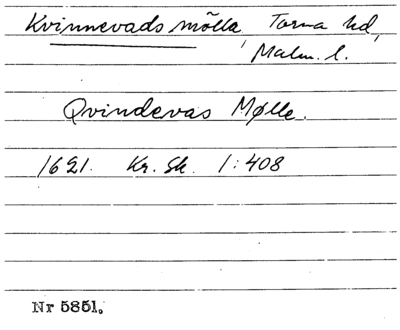 Kvinnevads mölla, Torna hd,
Malm. l.
Qvindevas Mølle.
1621. Kr. Sk. 1:408
Nr 5851.